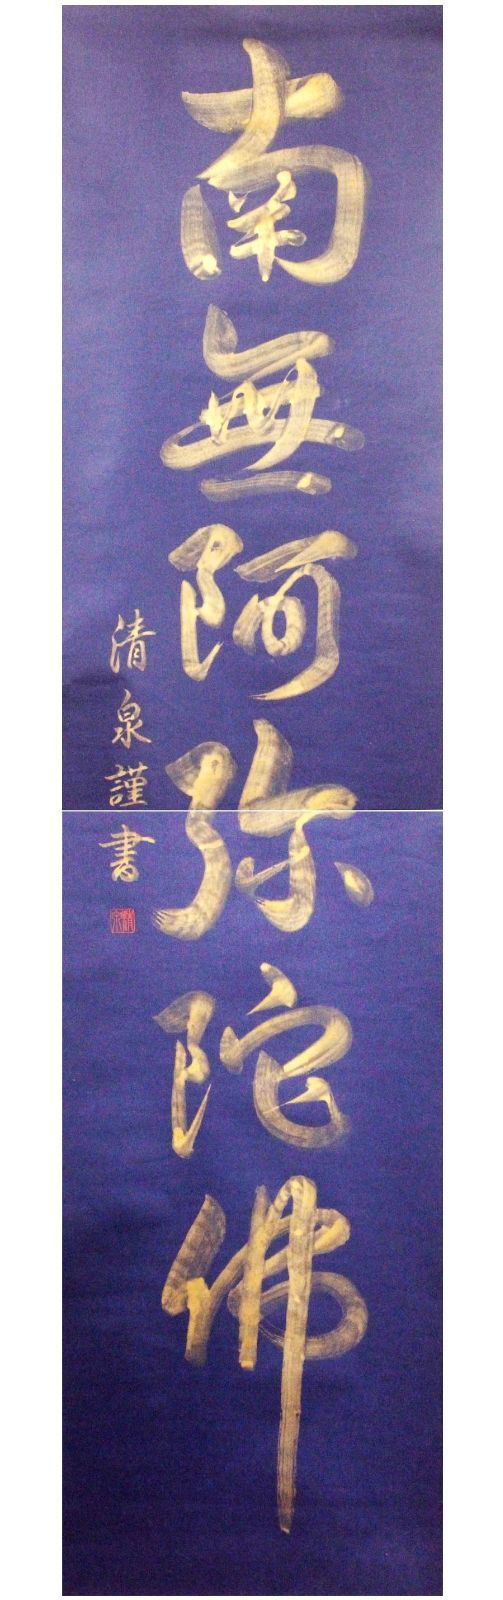 南無阿弥陀佛
清泉謹書